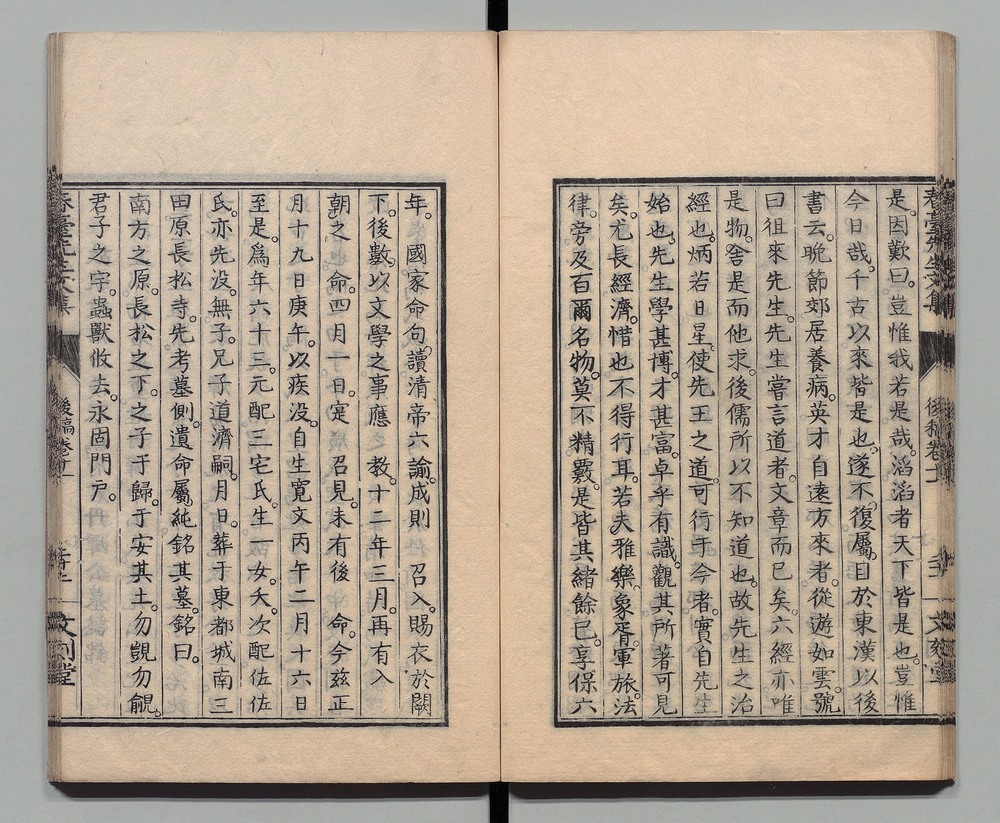 是。因歎曰。豈惟我若是哉。滔滔者天下皆是也。豈惟
今日哉。千古以來皆是也。遂不復屬目於東漢以後
書云。晩節郊居養病。英才自遠方來者。從遊如雲。號
曰徂來先生。先生嘗言道者。文章而已矣。六經亦唯
是物。舍是而他求。後儒所以不知道也。故先生之治
經也。炳若日星。使先王之道。可行于今者。實自先生
始也。先生學甚博。才甚富。卓乎有識。觀其所著可見
矣。尤長經濟。惜也不得行耳。若夫雅樂。象胥。軍旅。法
律。旁及百爾名物。莫不精覈。是皆其緒餘已。享保六
年。國家命句讀清帝六諭。成則召入。賜衣於闕
下。後數以文學之事應教。十二年三月。再有入
朝之命。四月一日。寔召見。未有後命。今茲正
月十九日庚午。以疾没。自生寛文丙午二月十六日
至是。爲年六十三。元配三宅氏。生一女。夭。次配佐佐
氏。亦先没。無子。兄子道濟嗣。月日。葬于東都城南三
田原長松寺。先考墓側。遺命屬純銘其墓。銘曰。
南方之原。長松之下。之子于歸。于安其土。勿覬勿覦。
君子之宇。蟲獸攸去。永固門戸。